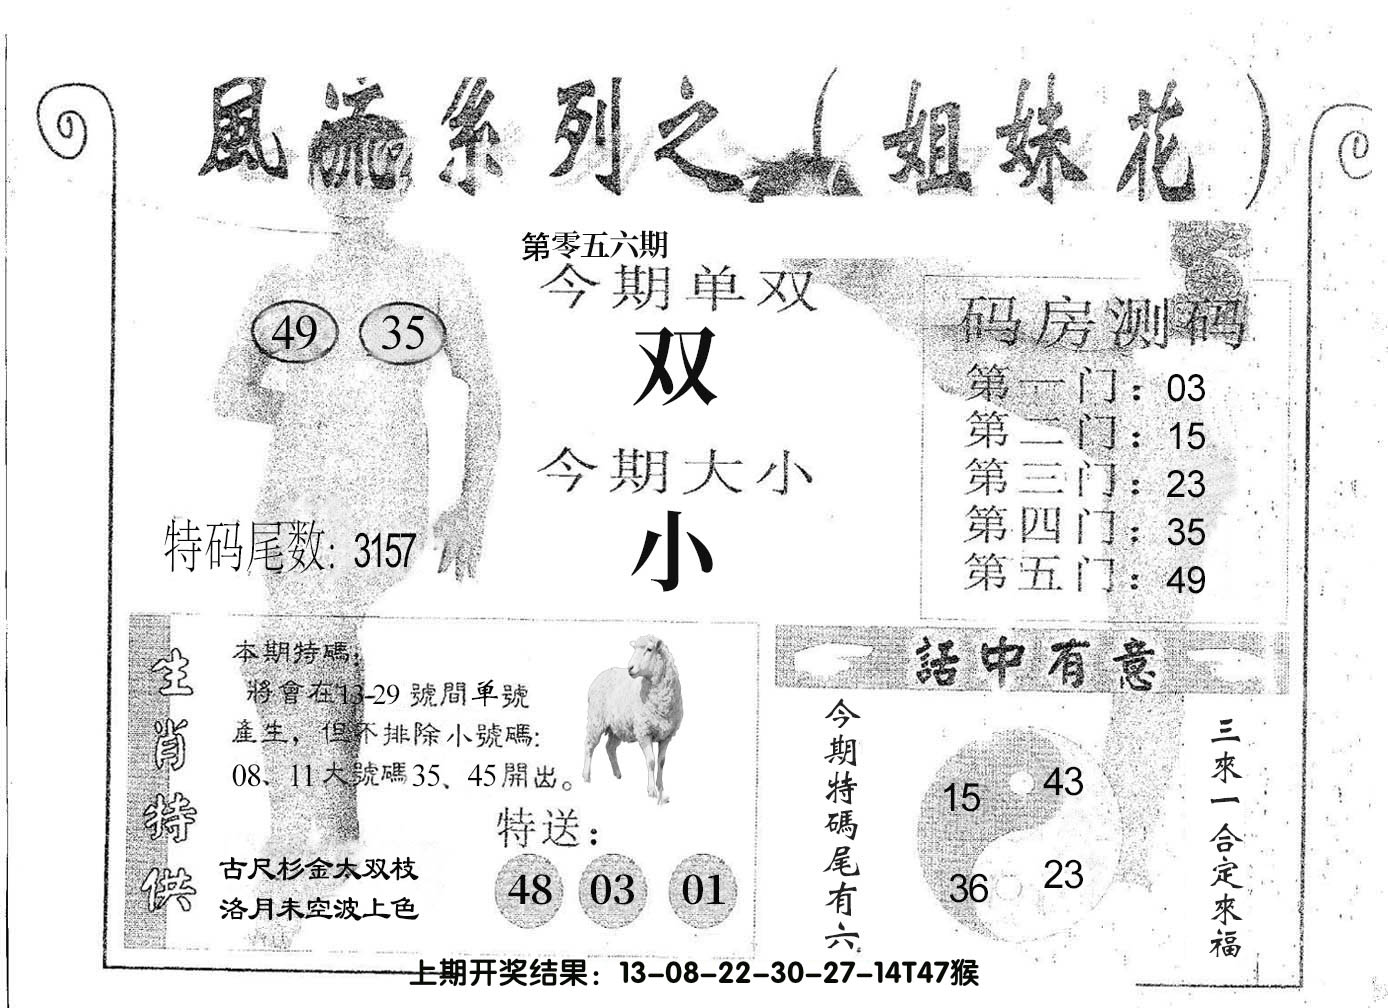 風流系列之（姐妹花）
第零五六期
今期单双
双
49 35
今期大小
小
特码尾数: 3157
码房测码
第一门：03
第二门：15
第三门：23
第四门：35
第五门：49
生肖特供
本期特碼，
將會在13-29 號間单號
產生，但不排除小號碼:
08、11大號碼35、45開出。
特送：
48 03 01
古尺杉金太双枝
洛月未空波上色
話中有意
今期特碼尾有六
15 43
36 23
三來一合定來福
上期开奖结果：13-08-22-30-27-14T47猴